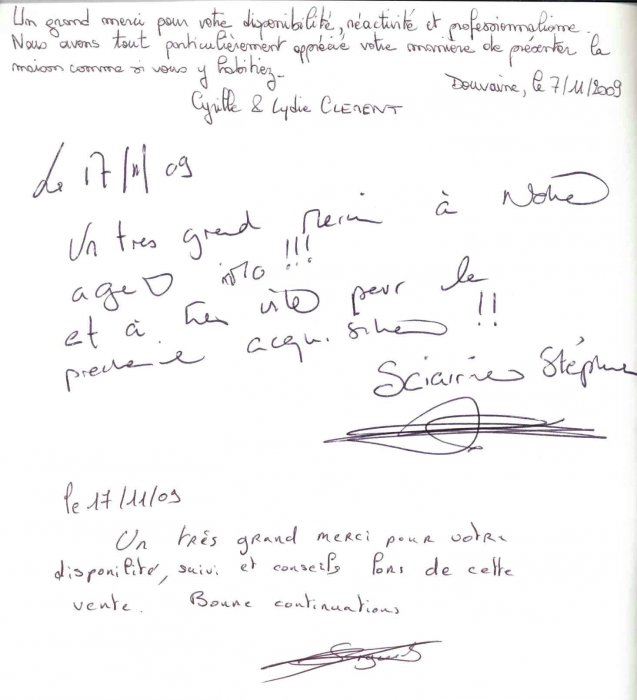 Un grand merci pour votre disponibilité, réactivité et professionnalisme.
Nous avons tout particulièrement apprécié votre manière de présenter la
maison comme si vous y habitiez_
Douvaine, le 7/11/2009
Cyrille & Lydie CLEMENT
Le 17/11/09
Un tres grand merci à Notre
agent immo !!!
et à tres vite pour la
prochaine acquisition !!
Stéphane
le 17/11/09
Un très grand merci pour votre
disponilité, suivi et conseils lors de cette
vente. Bonne continuations